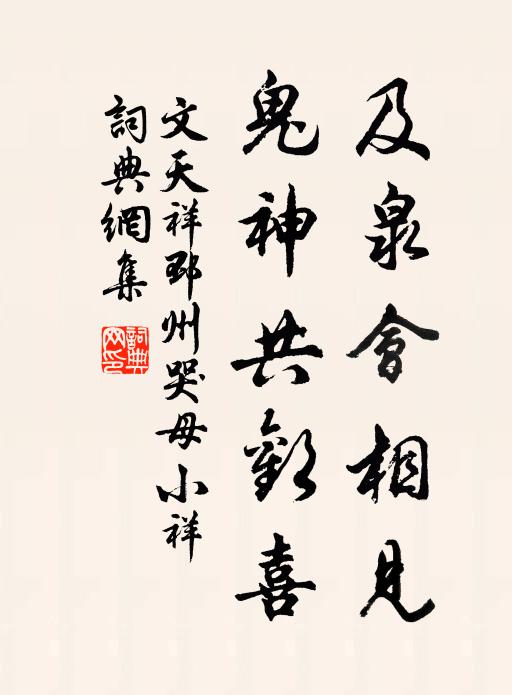 及泉會相見
鬼神共歡喜
文天祥邳州哭母小祥
詞典網集
詞典網印